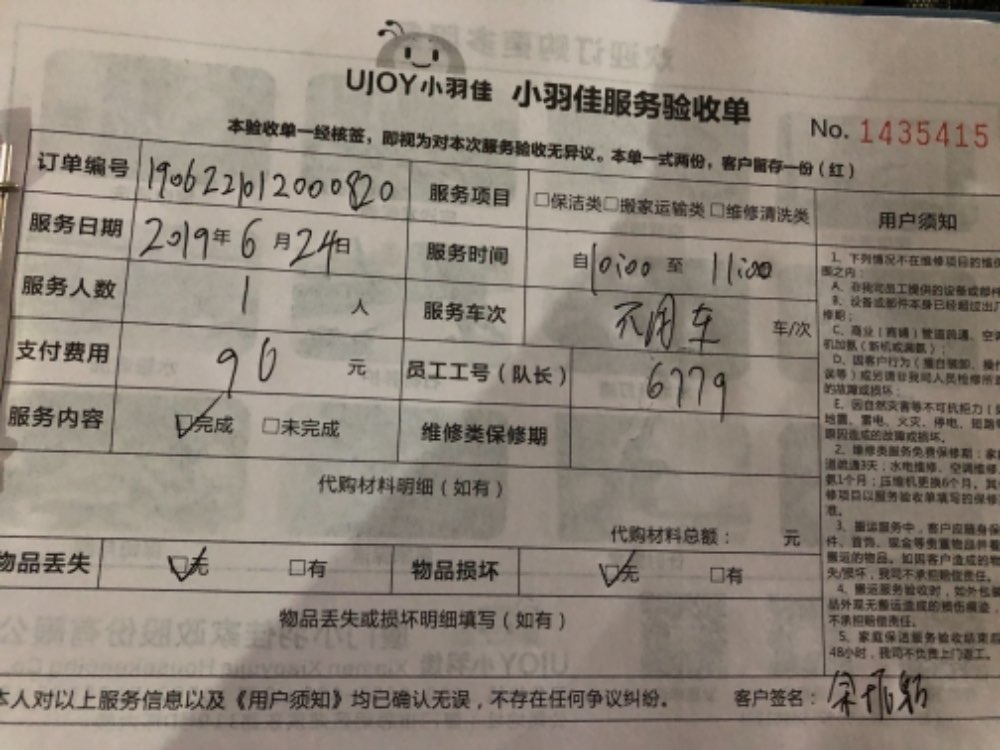 UJOY小羽佳 小羽佳服务验收单
No. 1435415
本验收单一经核签，即视为对本次服务验收无异议。本单一式两份，客户留存一份（红）
订单编号 1906221012000820 服务项目 □保洁类□搬家运输类 □维修清洗类
服务日期 2019年6月24日 服务时间 自10:00至11:00
服务人数 1 人 服务车次 不用车 车/次
支付费用 90 元 员工工号（队长） 6779
服务内容 ☑完成 □未完成 维修类保修期
代购材料明细（如有）
代购材料总额： 元
物品丢失 ☑无 □有 物品损坏 ☑无 □有
物品丢失或损坏明细填写（如有）
本人对以上服务信息以及《用户须知》均已确认无误，不存在任何争议纠纷。 客户签名：
用户须知
1、下列情况不在维修项目的维保
围之内：
A、非我司员工提供的设备或部件
B、设备或部件本身已经超过出厂
修期；
C、商业（商铺）管道疏通、空调
机加氨（新机或满氨）；
D、因客户行为（擅自装卸、操作
误等）或另请非我司人员检修所造
的故障或损坏；
E、因自然灾害等不可抗拒力（如
地震、雷电、火灾、停电、短路等
原因造成的故障或损坏。
2、维修类服务免费保修期：家庭
道疏通3天；水电维修、空调维修
氨1个月；压缩机更换6个月。其
修项目以服务验收单填写的保修
准。
3、搬运服务中，客户应随身保
件、首饰、现金等贵重物品并看
搬运的物品。如因客户造成的物
失/损坏，我司不承担赔偿责任。
4、搬运服务验收时，如外包装
品外观无搬运造成的损伤痕迹，
不承担赔偿责任。
5、家庭保洁服务验收结束后
48小时，我司不负责上门返工。